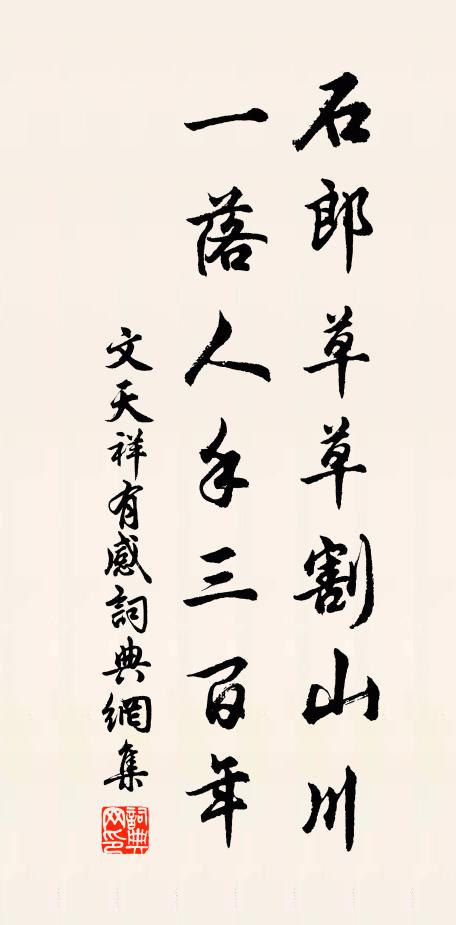 石郎草草割山川
一落人手三百年
文天祥有感詞典網集
詞典網印